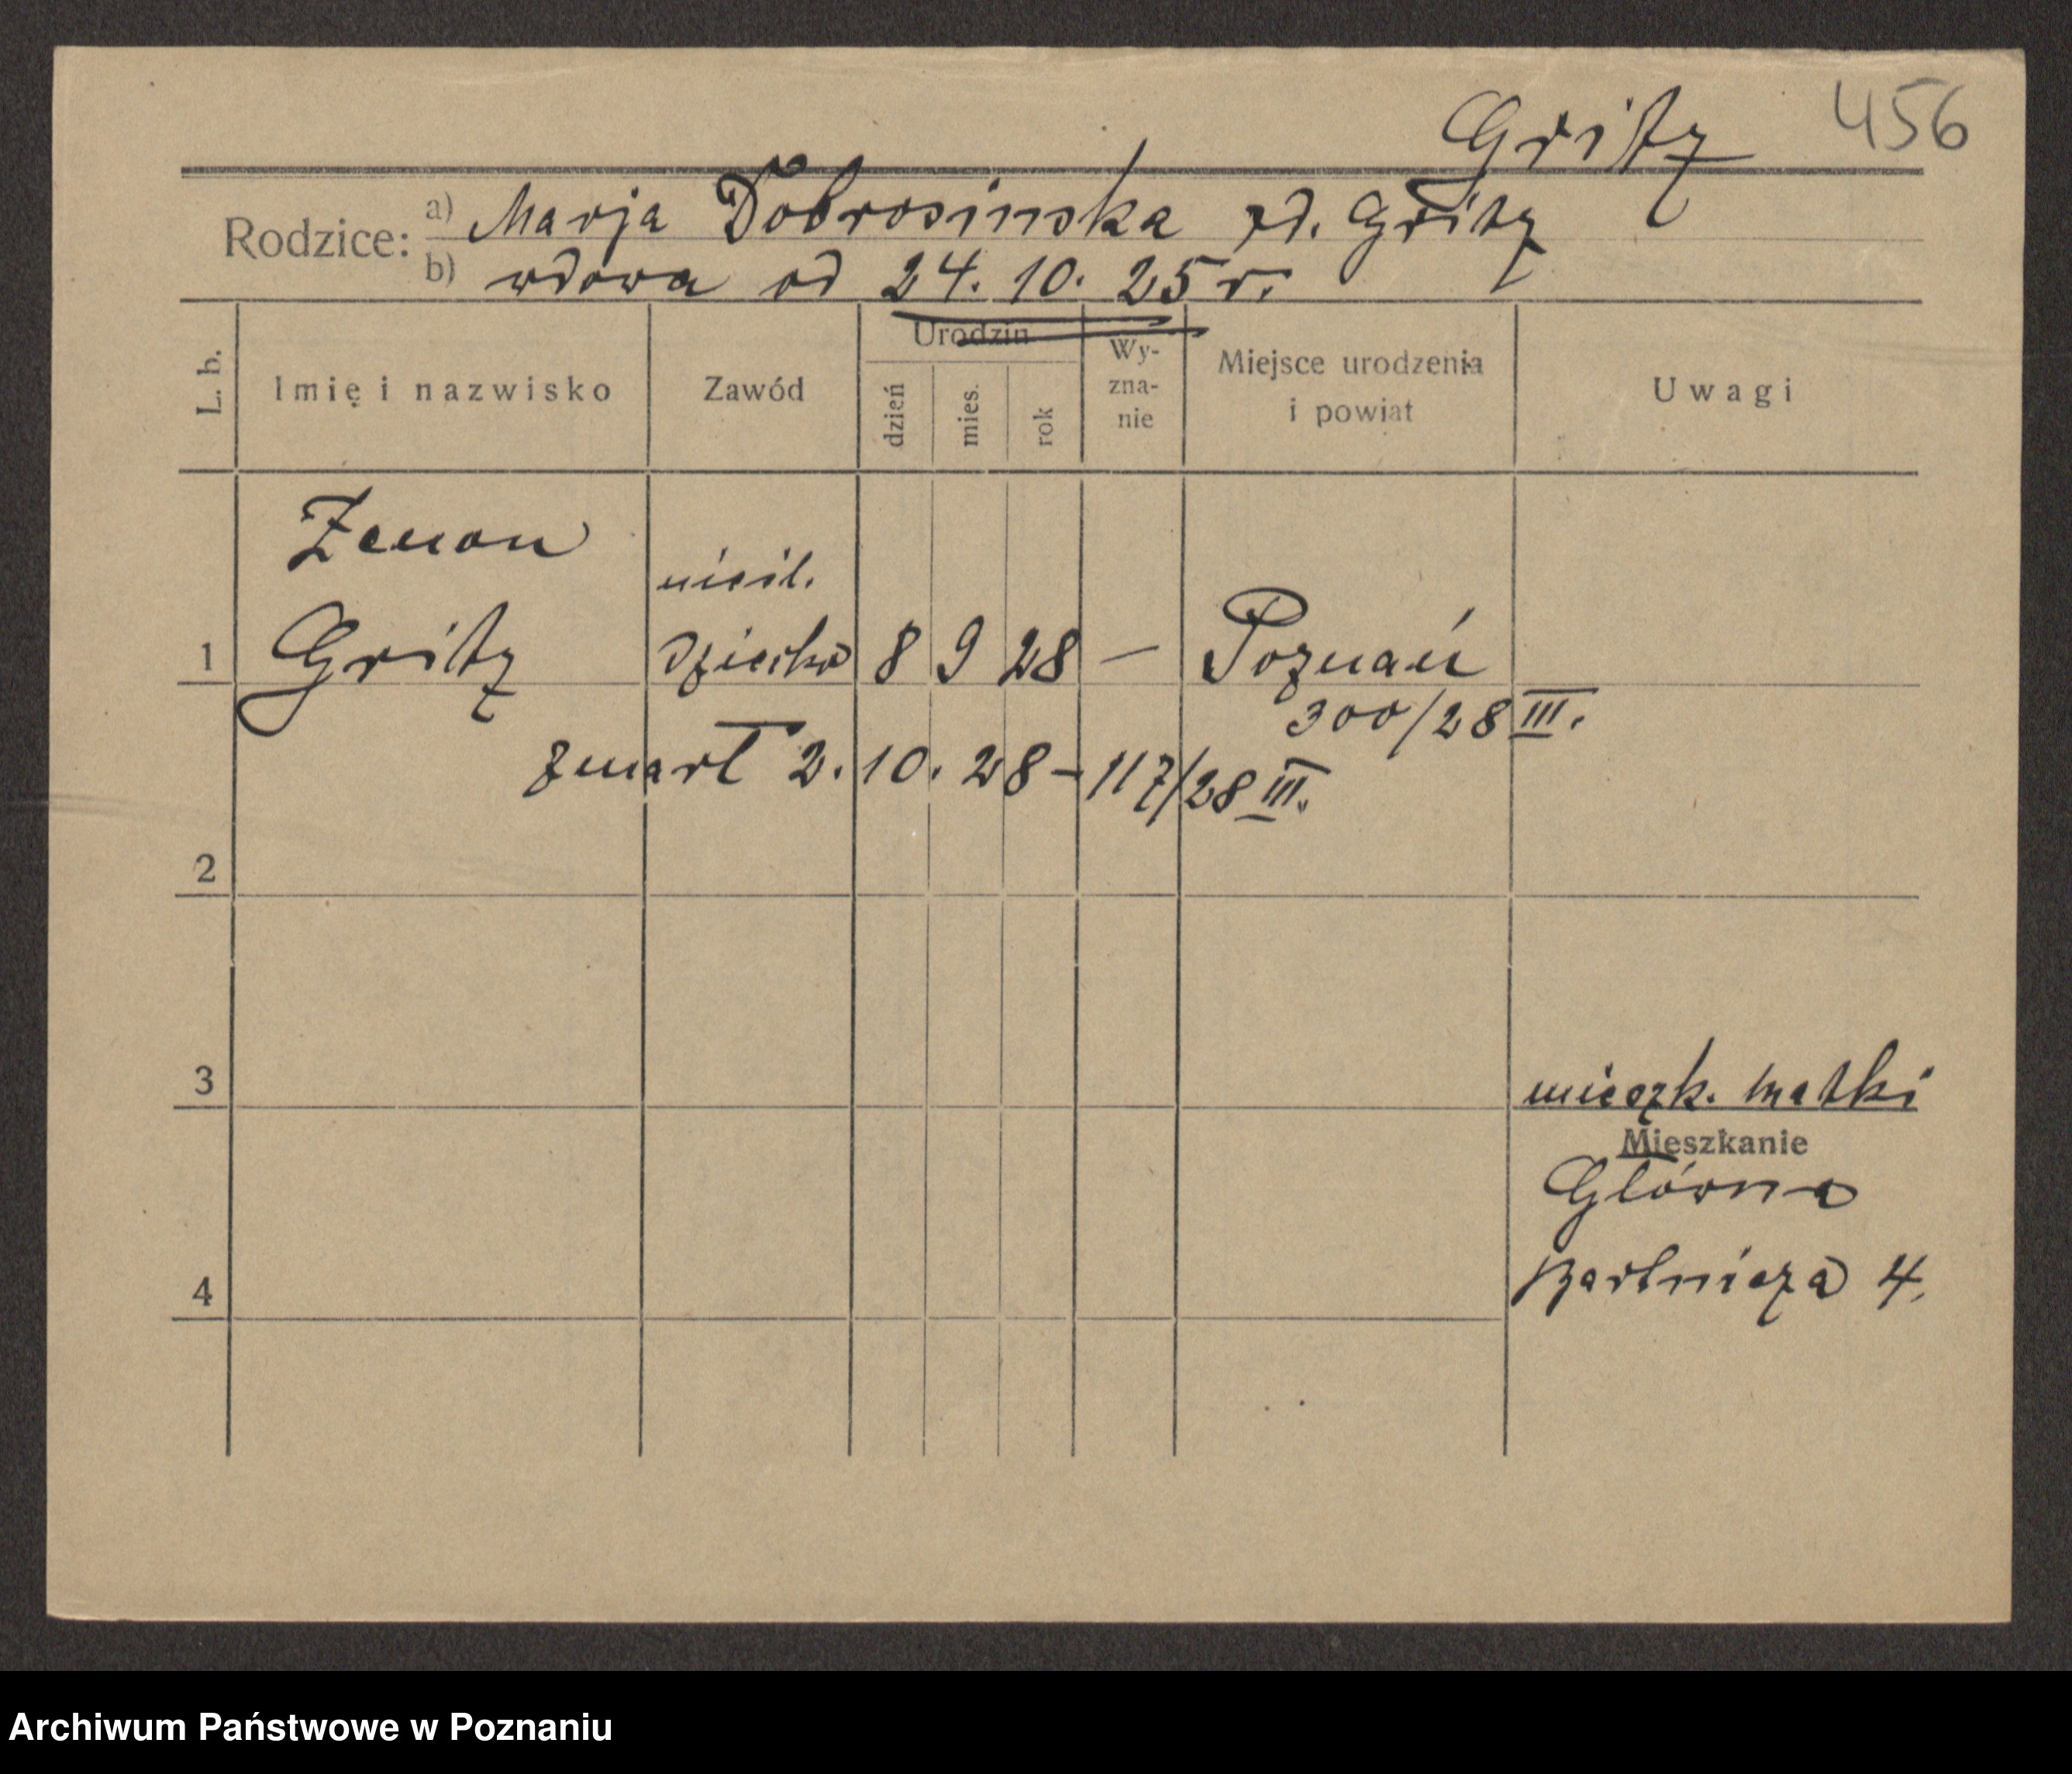 Gritz 456
Rodzice: a) Marja Dobrosinska zd. Gritz
b) wdowa od 24. 10. 25 r.
L. b. Imię i nazwisko Zawód Urodzin dzień mies. rok Wy-zna-nie Miejsce urodzenia i powiat Uwagi
Zenon
nieśl.
1 Gritz dziecko 8 9 28 — Poznań
300/28 III.
zmarł 2. 10. 28 - 117/28 III.
2
3 mieszk. matki
Mieszkanie
Główna
4 Bartnicza 4.
Archiwum Państwowe w Poznaniu